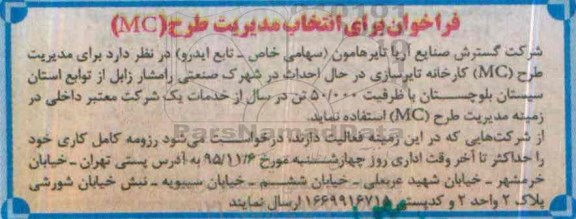 فراخوان برای انتخاب مدیریت طرح (MC)
شرکت گسترش صنایع آریا تایر هامون (سهامی خاص ـ تابع ایدرو) در نظر دارد برای مدیریت
طرح (MC) کارخانه تایرسازی در حال احداث در شهرک صنعتی رامشار زابل از توابع استان
سیستان بلوچستان با ظرفیت ۵۰/۰۰۰ تن در سال از خدمات یک شرکت معتبر داخلی در
زمینه مدیریت طرح (MC) استفاده نماید.
از شرکت‌هایی که در این زمینه فعالیت دارند درخواست می‌شود رزومه کامل کاری خود
را حداکثر تا آخر وقت اداری روز چهارشنبه مورخ ۹۵/۱۱/۶ به آدرس پستی تهران ـ خیابان
خرمشهر ـ خیابان شهید عربعلی ـ خیابان ششم ـ خیابان سیبویه ـ نبش خیابان شورشی
پلاک ۲ واحد ۲ و کدپستی ۱۶۶۹۹۱۶۷۱۵ ارسال نمایند
ParsNamadData